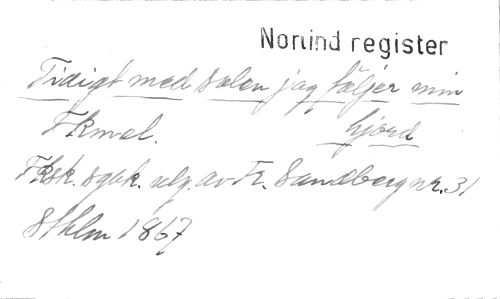 Norlind register
Tidigt med solen jag följer min
hjord
Fkmel.
Fksk. sgbk. utg. av Fr. Sandberg nr. 31
Sthlm 1867